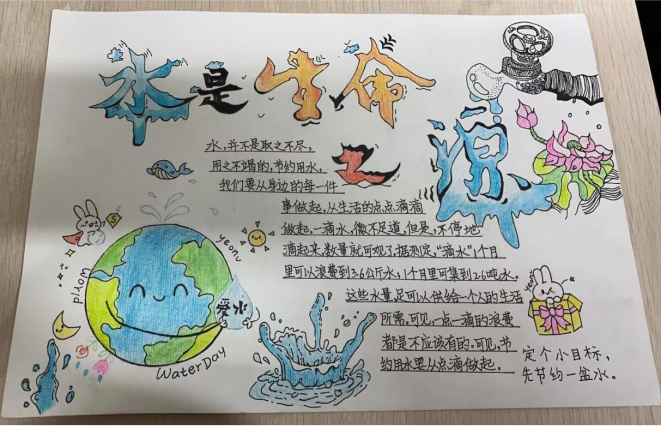 水是生命
之源
水,并不是取之不尽,
用之不竭的,节约用水,
我们要从身边的每一件
事做起,从生活的点点滴滴
做起,一滴水,微不足道,但是,不停地
滴起来,数量就可观了,据测定,“滴水”1个月
里可以浪费到3.6公斤水;1个月里可集到2.6吨水,
这些水量,足可以供给一个人的生活
所需,可见,一点一滴的浪费
都是不应该有的.可见,节
约用水要从点滴做起.
World
yeonu
爱水
Water Day
定个小目标,
先节约一盆水。